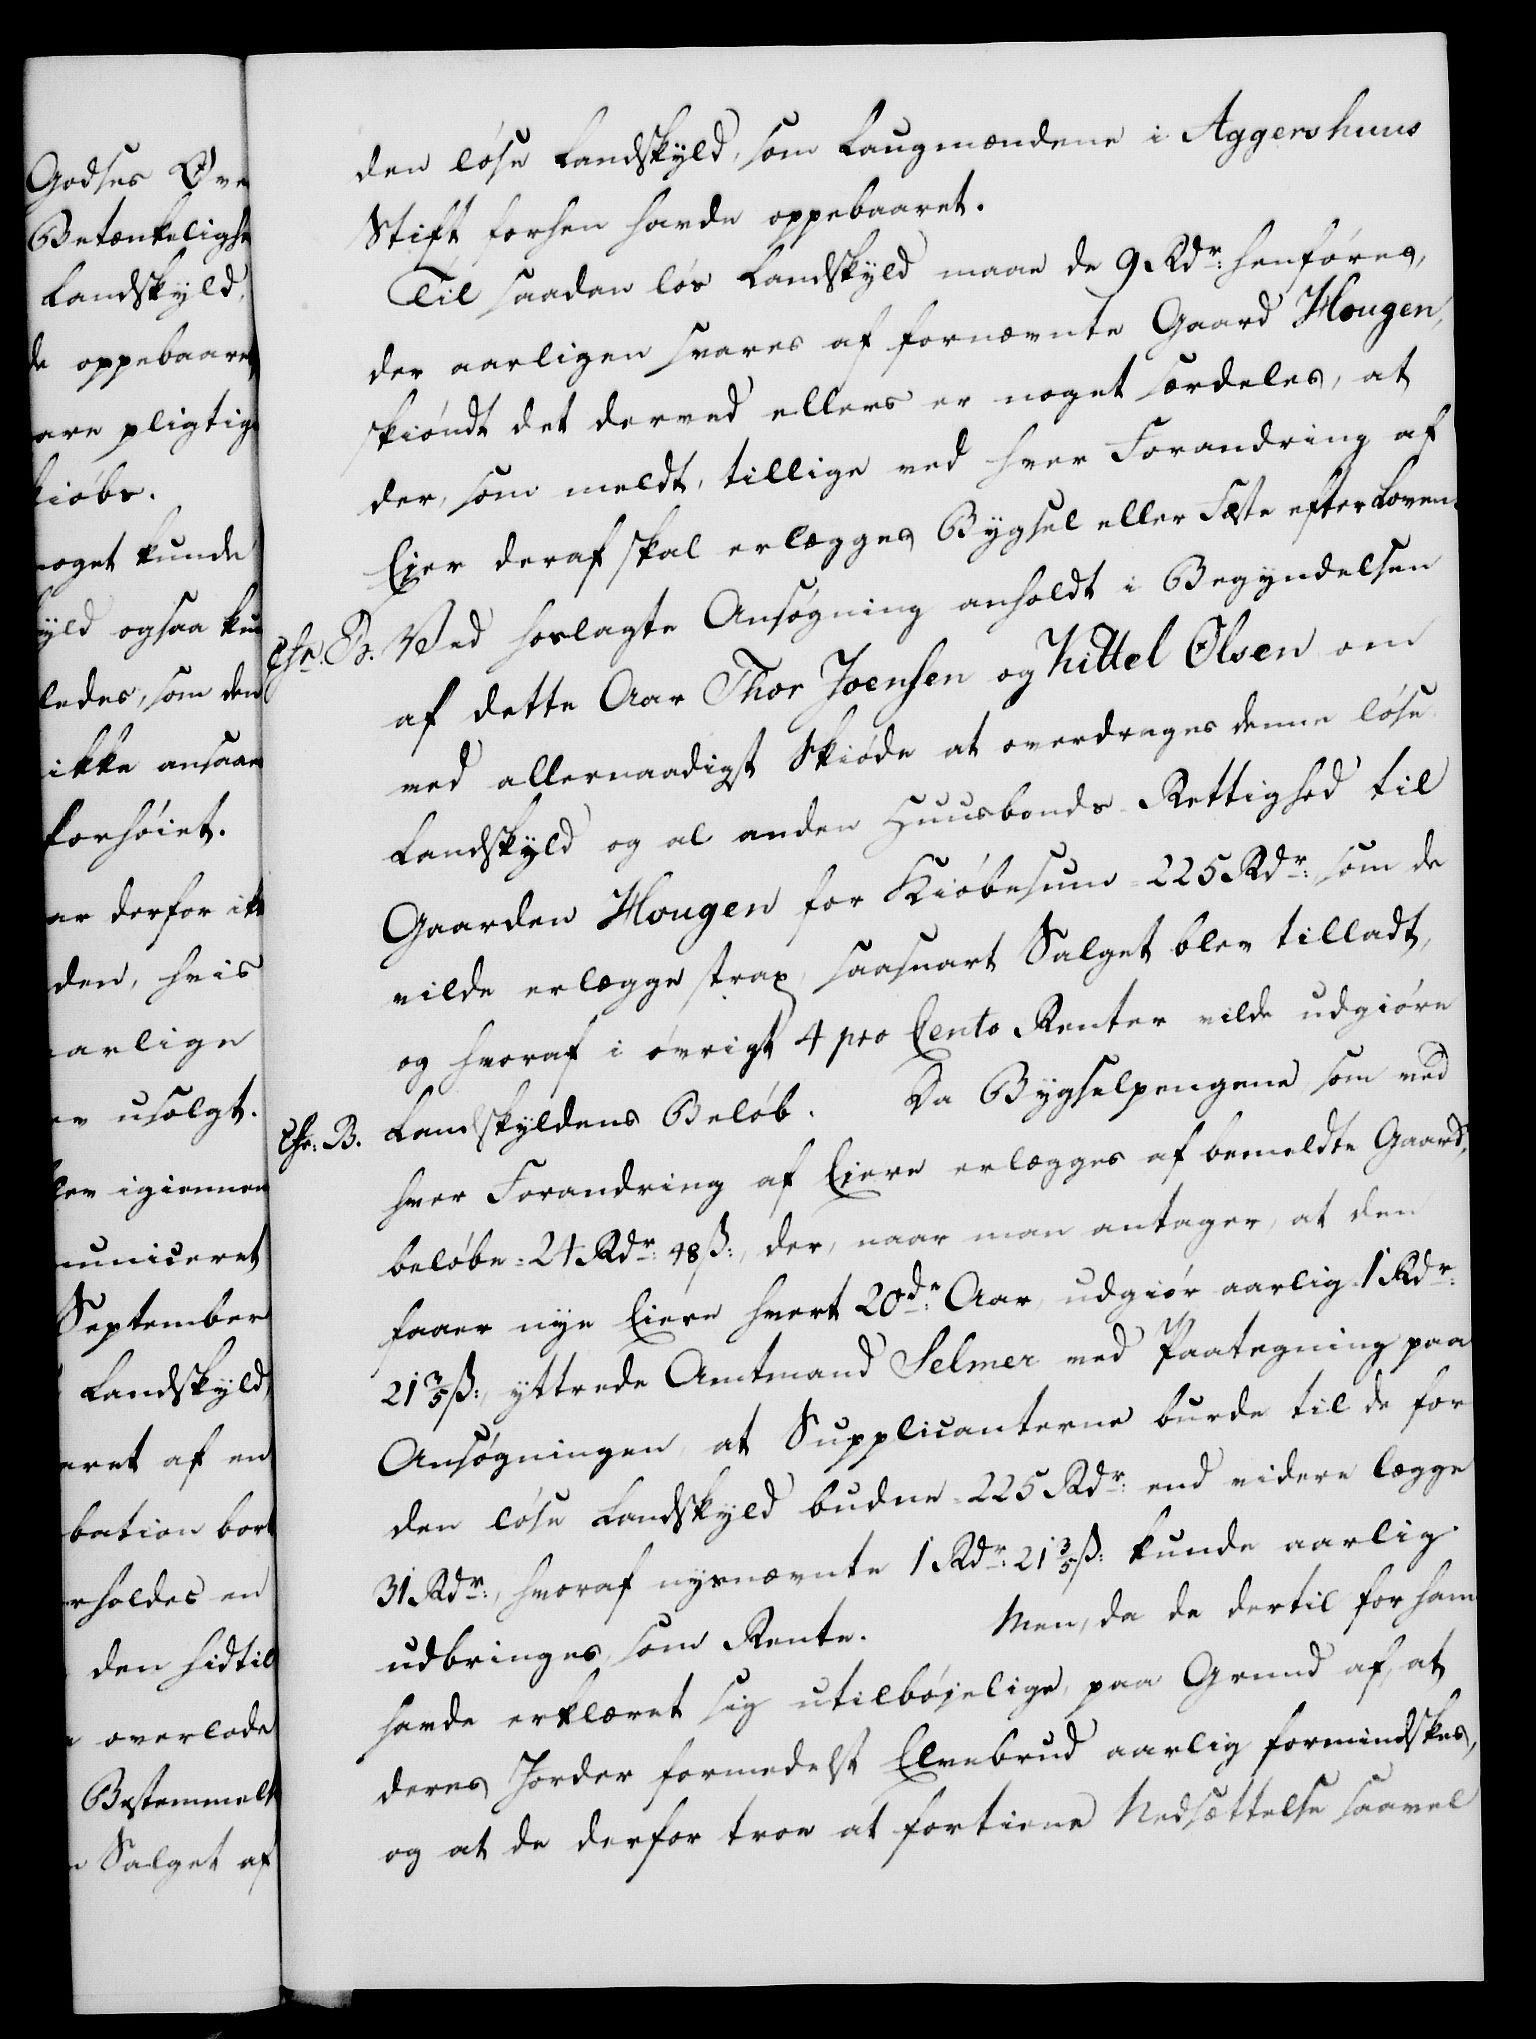 Godses Ove
Betænkelighe
Landskyld,
de oppebaaret
are pligtige
kiøbe.
noget kunde
yld ogsaa kun
ledes, som den
ikke ansaae
forhøiet.
ar derfor ikk
den, hvis
aarlige
ev usolgt.
lev igiennem
municeret
September
Landskyld,
eret af en
bation bort
rholdes en
den hidtil
overlode
Bestemmels
Salget af
den løse Landskyld, som Laugmændene i Aggershuus
Stift forhen havde oppebaaret.
Til saadan løs Landskyld maae de 9 Rdr: henføres,
der aarligen svares af fornævnte Gaard Hougen,
skiøndt det derved ellers er noget særdeles, at
der, som meldt, tillige ved hver Forandring af
Eier deraf skal erlægges Bygsel eller Fæste efter Loven.
Chr. B. Ved hoslagte Ansøgning anholdt i Begyndelsen
af dette Aar Thor Joensen og Kittel Olsen om
ved allernaadigst Skiøde at overdrages denne løse
Landskyld og al anden Huusbonds Rettighed til
Gaarden Hougen for Kiøbesum = 225 Rdr: som de
vilde erlægge strax, saasnart Salget blev tilladt,
og hvoraf i øvrigt 4 pro Cento Renter vilde udgiøre
Chr: B. Landskyldens Beløb. Da Bygselpengene som ved
hver Forandring af Eiere erlægges af bemeldte Gaard,
beløbe = 24 Rdr: 48 ß:, der, naar man antager, at den
faaer nye Eiere hvert 20de: Aar, udgiør aarlig 1 Rdr:
21 3/5 ß:, yttrede Amtmand Selmer ved Paategning paa
Ansøgningen, at Supplicanterne burde til de for
den løse Landskyld budne = 225 Rdr: end videre lægge
31 Rdr:, hvoraf nysnævnte 1 Rdr: 21 3/5 ß: kunde aarlig
udbringes, som Rente. Men, da de dertil for ham
havde erklæret sig utilbøjelige, paa Grund af, at
deres Jorder formedelst Elvebrud aarlig formindskes,
og at de derfor troe at fortiene Nedsættelse saavel